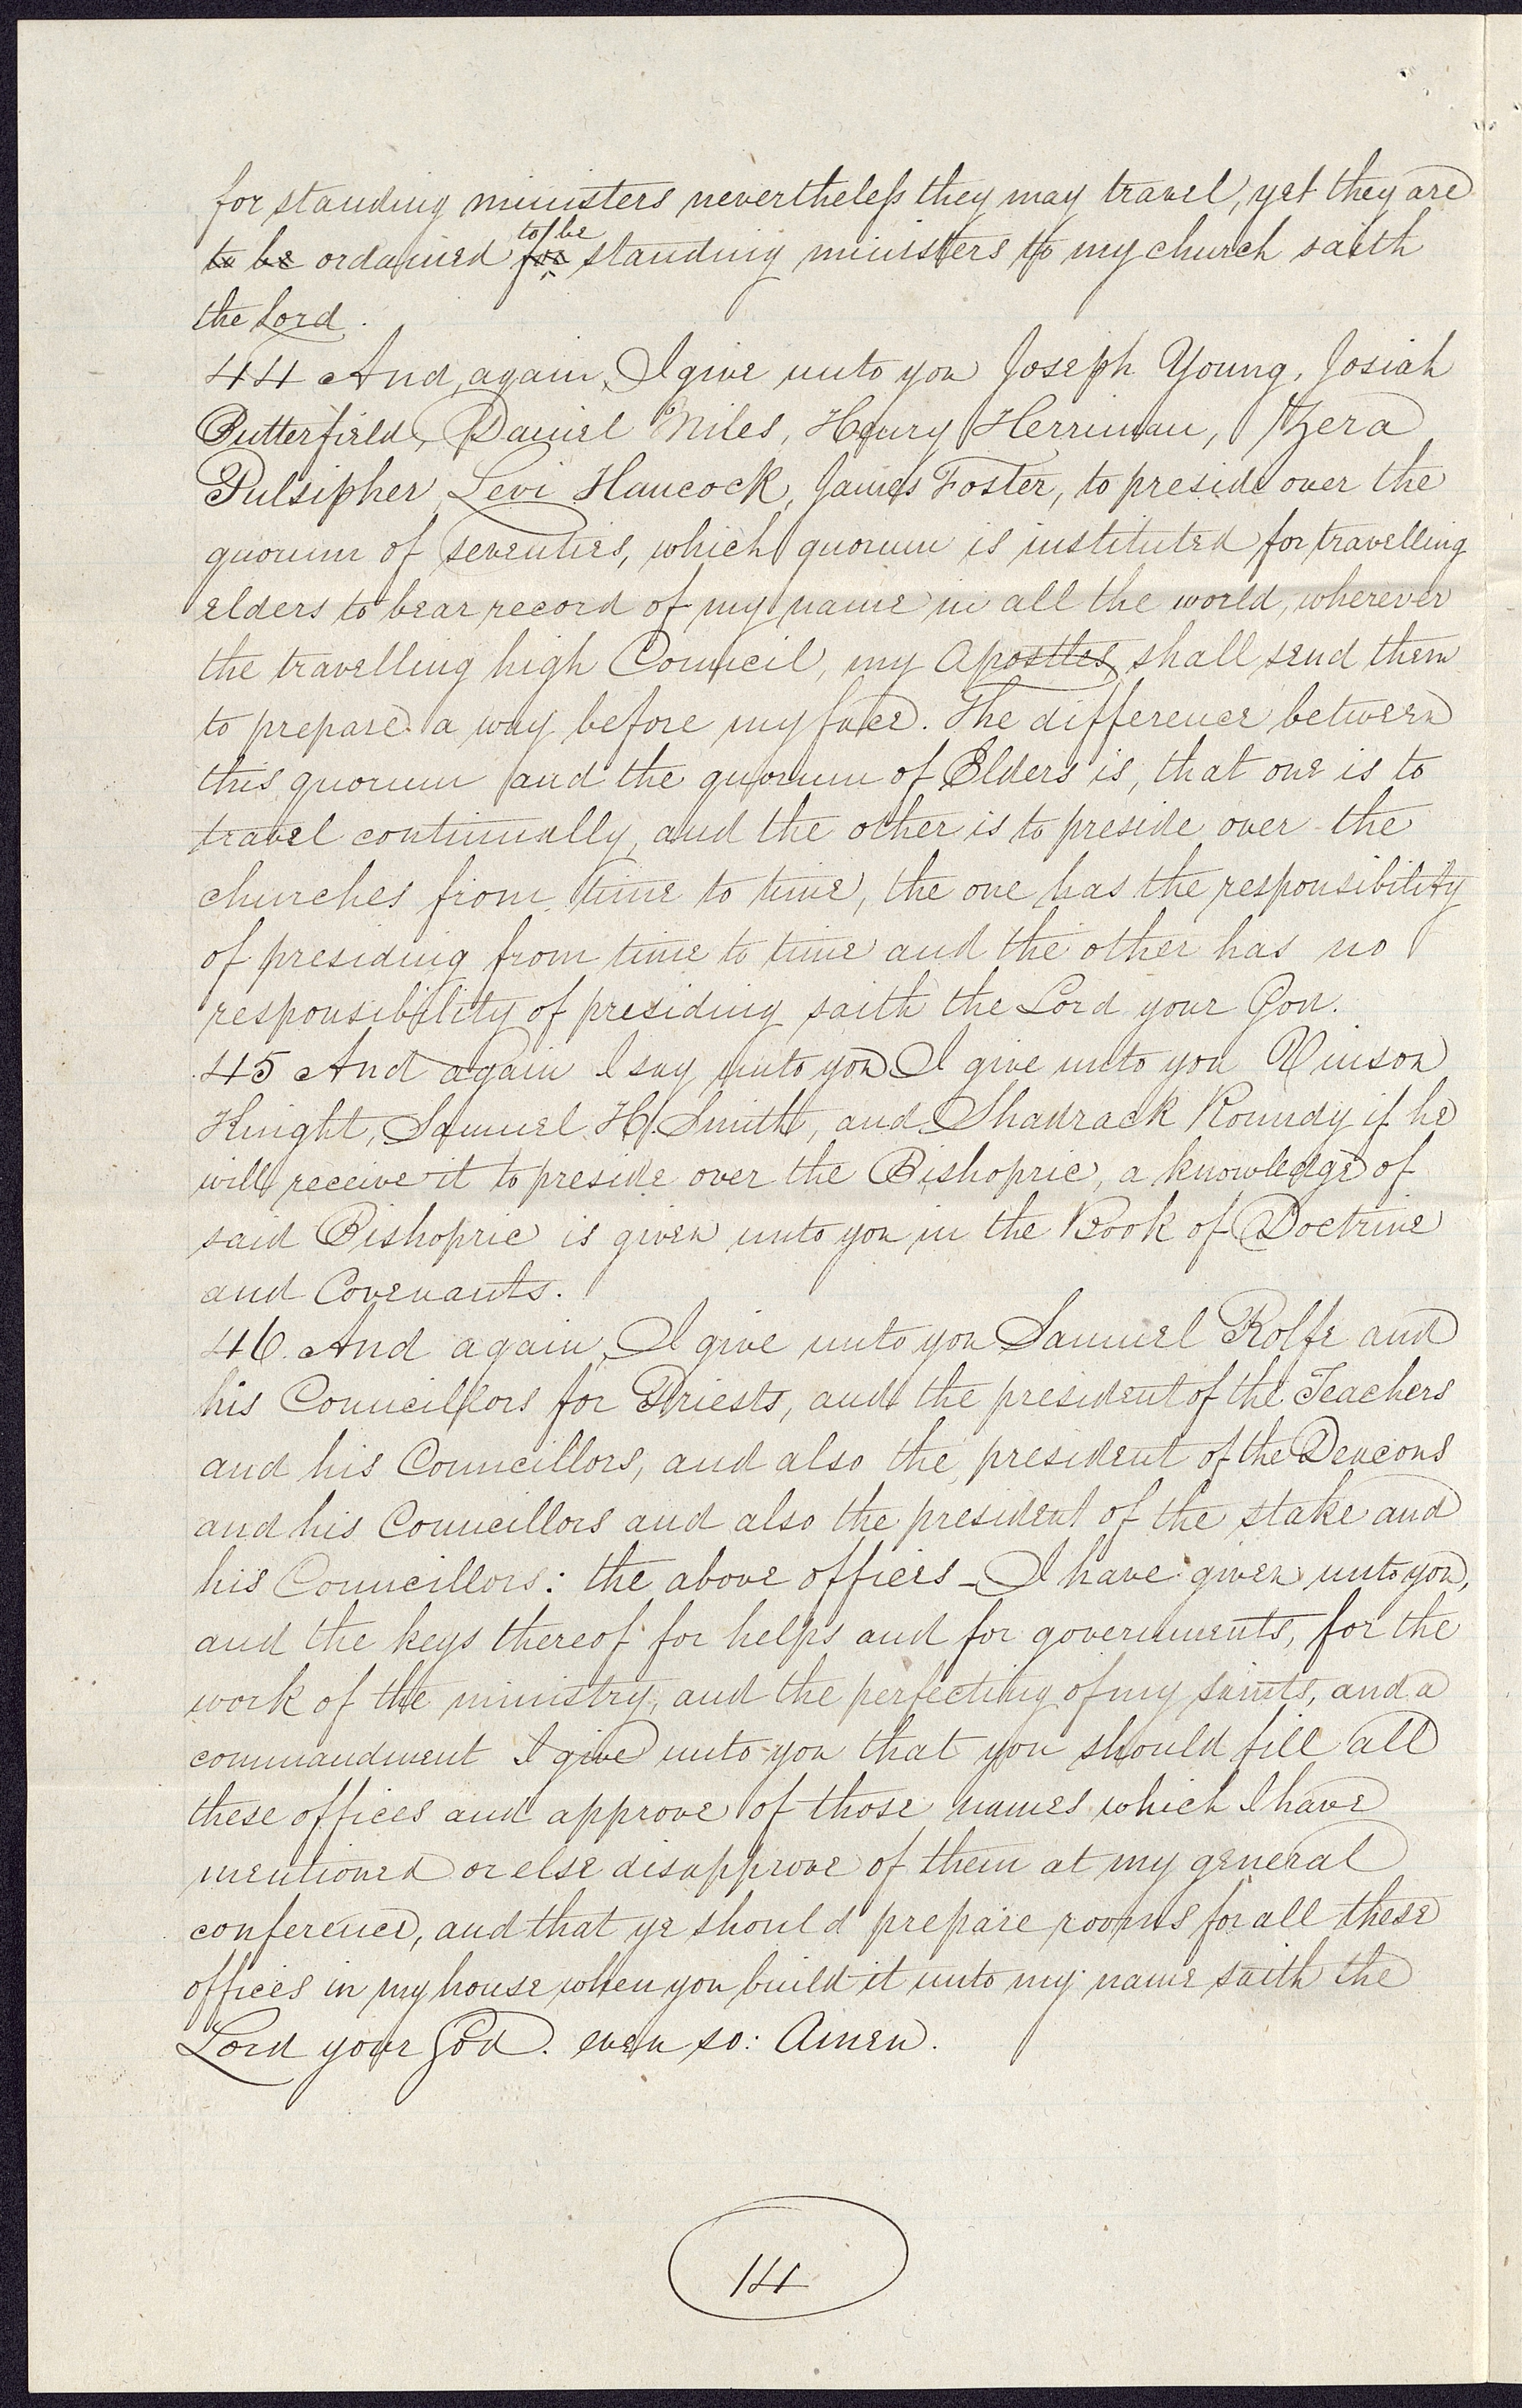 for standing ministers nevertheless they may travel, yet they are
to be ordained for to be standing ministers to my church saith
the Lord.
44 And again, I give unto you Joseph Young, Josiah
Butterfield, Daniel Miles, Henry Herriman, Zera
Pulsipher, Levi Hancock, James Foster, to preside over the
quorum of seventies, which quorum is instituted for travelling
elders to bear record of my name in all the world, wherever
the travelling high Council, my Apostles, shall send them
to prepare a way before my face. The difference between
this quorum and the quorum of Elders is, that one is to
travel continually, and the other is to preside over the
churches from time to time, the one has the responsibility
of presiding from time to time and the other has no
responsibility of presiding saith the Lord your God.
45 And again I say unto you I give unto you Vinson
Knight, Samuel H. Smith, and Shadrack Roundy if he
will receive it to preside over the Bishopric, a knowledge of
said Bishopric is given unto you in the Book of Doctrine
and Covenants.
46. And again, I give unto you Samuel Rolfe and
his Councillors for Priests, and the president of the Teachers
and his Councillors, and also the president of the Deacons
and his Councillors and also the president of the stake and
his Councillors: the above offices I have given unto you,
and the keys thereof for helps and for governments, for the
work of the ministry, and the perfecting of my saints, and a
commandment I give unto you that you should fill all
these offices and approve of those names which I have
mentioned or else disapprove of them at my general
conference, and that ye should prepare rooms for all these
offices in my house when you build it unto my name saith the
Lord your God. even so: Amen.
14